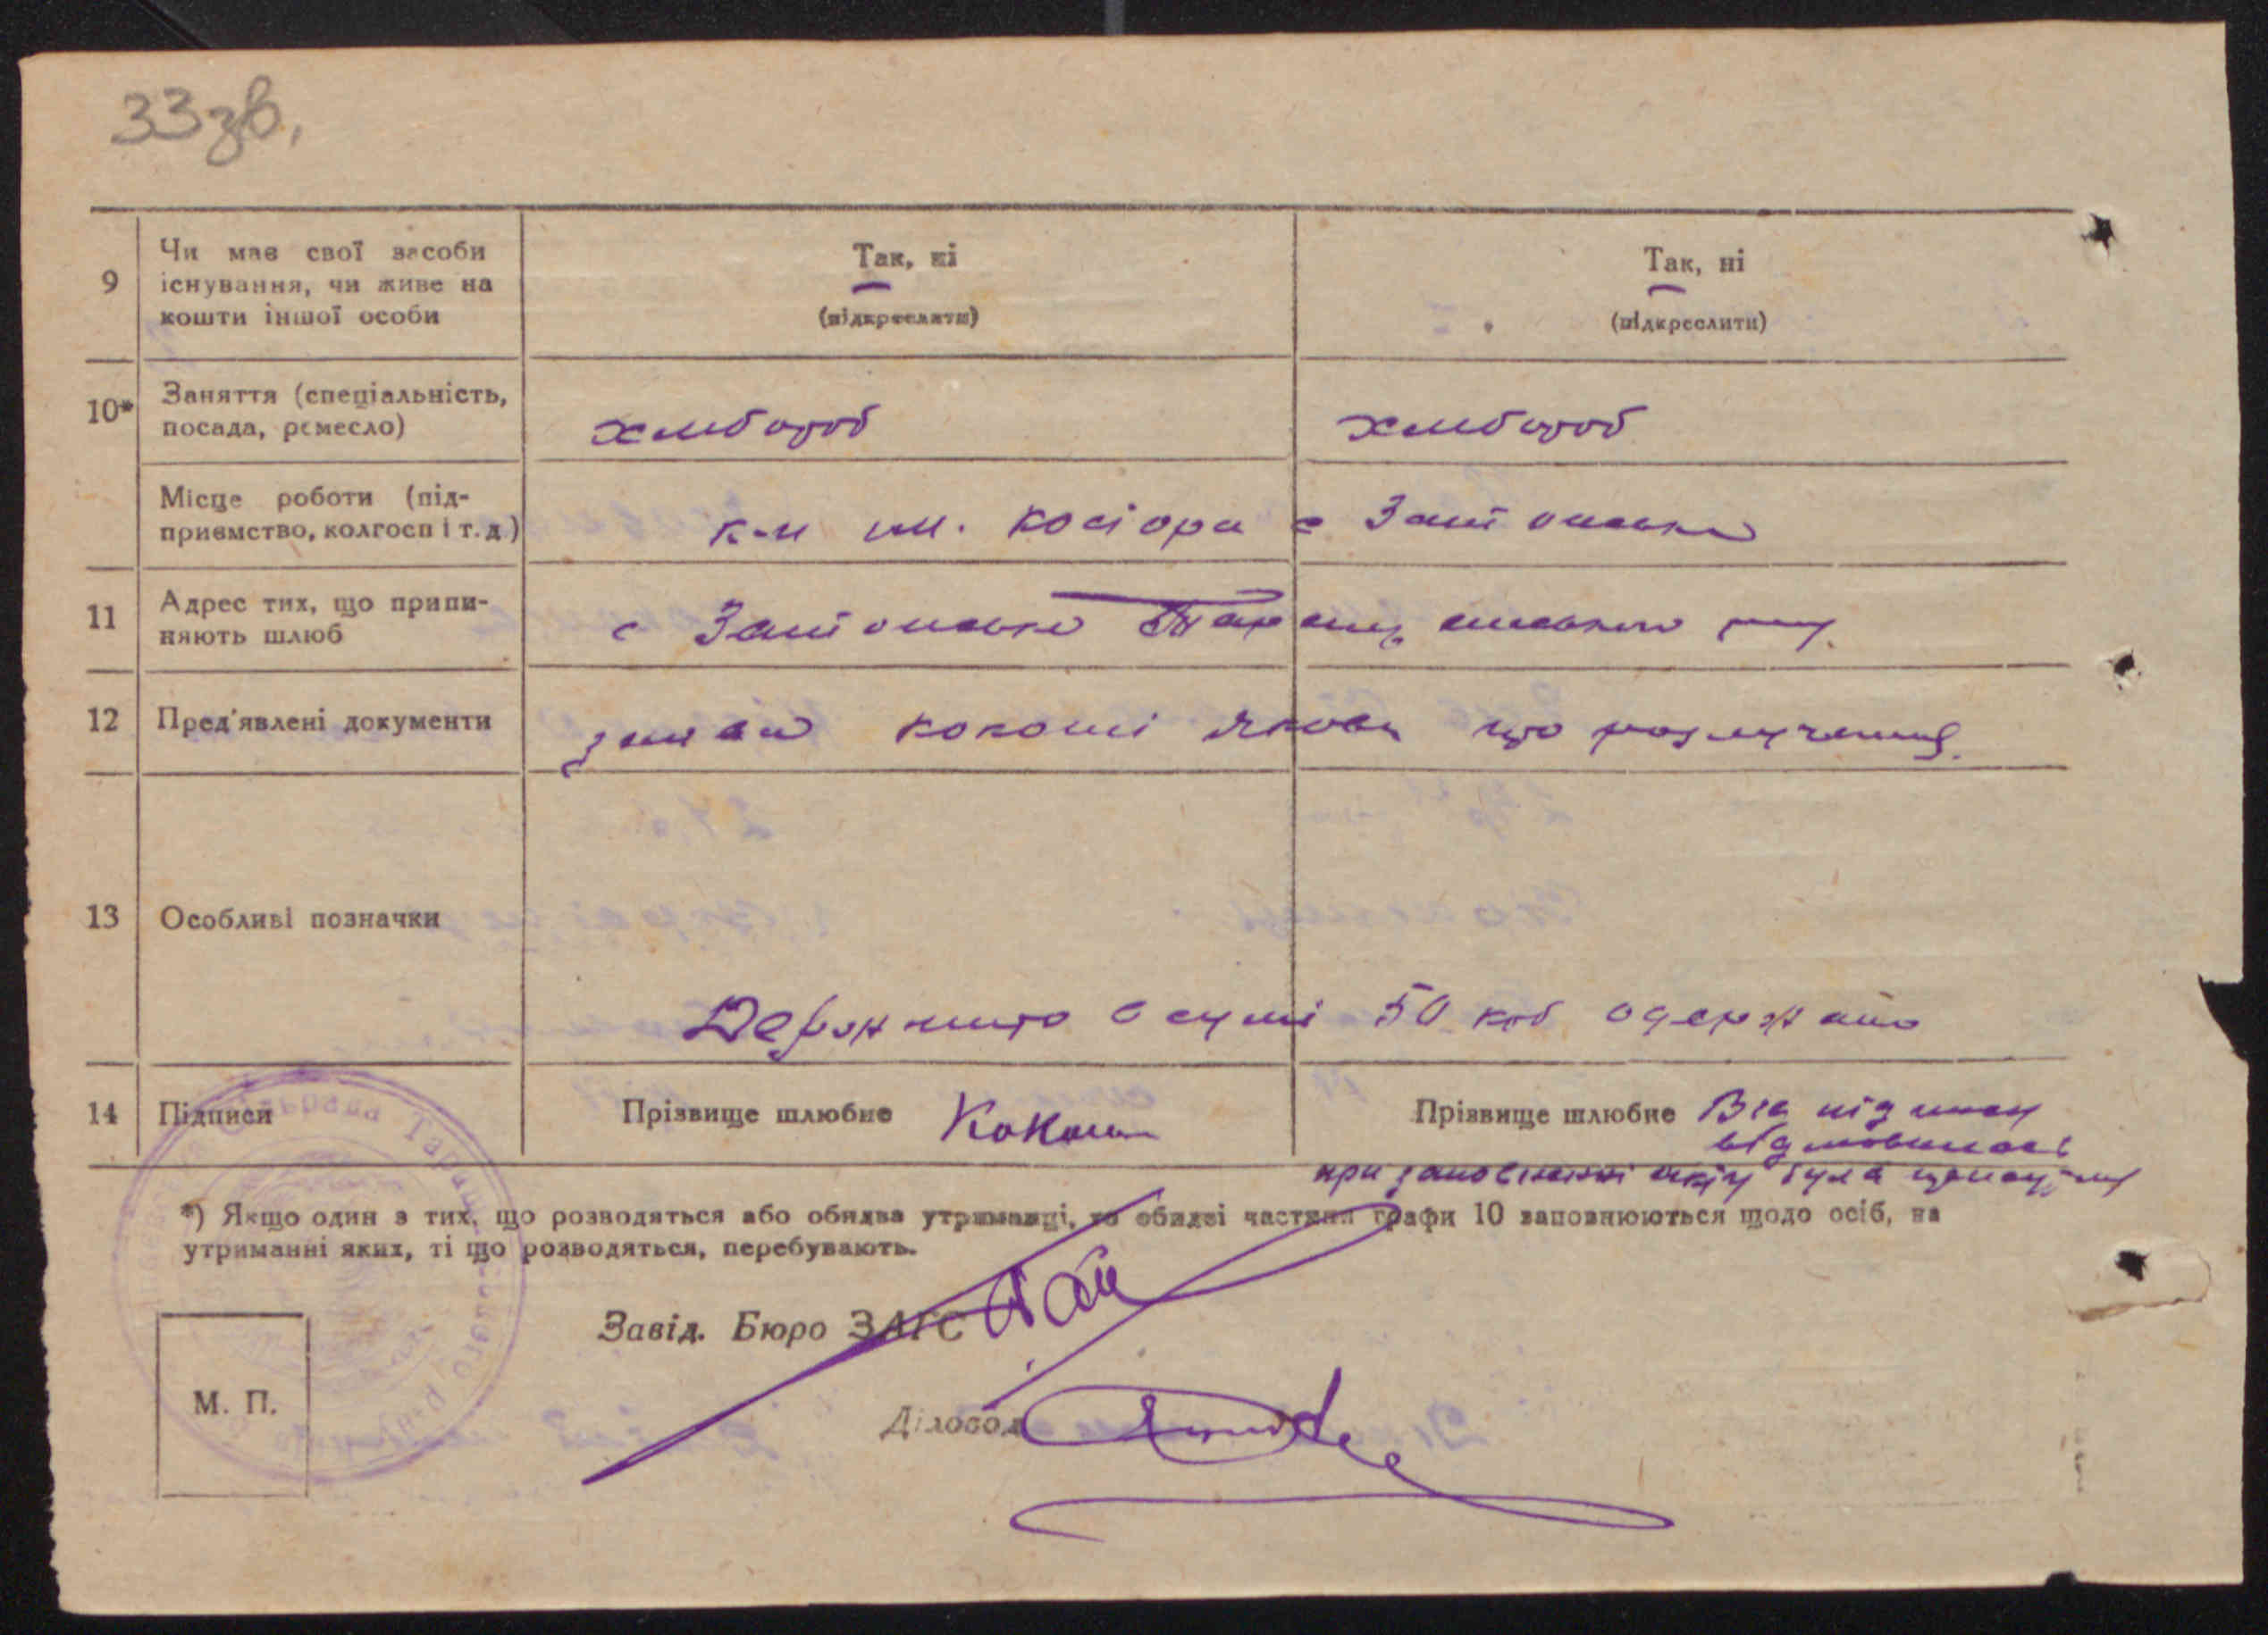 33зв.
9 Чи має свої засоби існування, чи живе на кошти іншої особи
Так, ні
(підкреслити)
Так, ні
(підкреслити)
10* Заняття (спеціальність, посада, ремесло)
хлибороб
хлибороб
Місце роботи (під-
приємство, колгосп і т. д.)
к-п им. косіора с
11 Адрес тих, що припи-
няють шлюб
с
12 Пред'явлені документи
заява кокоші якова що
13 Особливі позначки
Держмито в сумі 50 крб одержано
14 Підписи
Прізвище шлюбне Кокош
Прізвище шлюбне Від підпису
відмовилась
при заповненні акту була
*) Якщо один з тих, що розводяться або обидва утриманці, то обидві частини графи 10 заповнюються щодо осіб, на
утриманні яких, ті що розводяться, перебувають.
Завід. Бюро ЗАГС
М. П.
Діловод